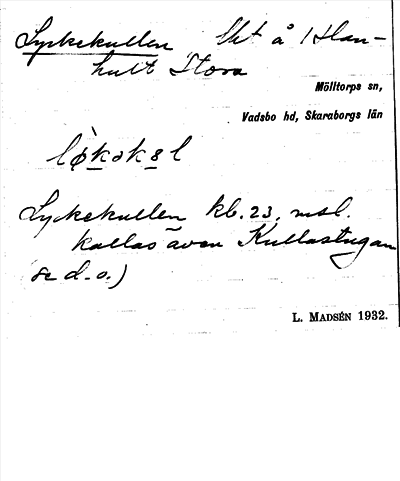 Lyckekullen Ht å 1 Han-
hult Stora
Mölltorps sn,
Vadsbo hd, Skaraborgs län
lø̀kəkɵl
Lyckekullen kb. 23. msl.
kallas även Kullastugan
se d. o.)
L. MADSÉN 1932.